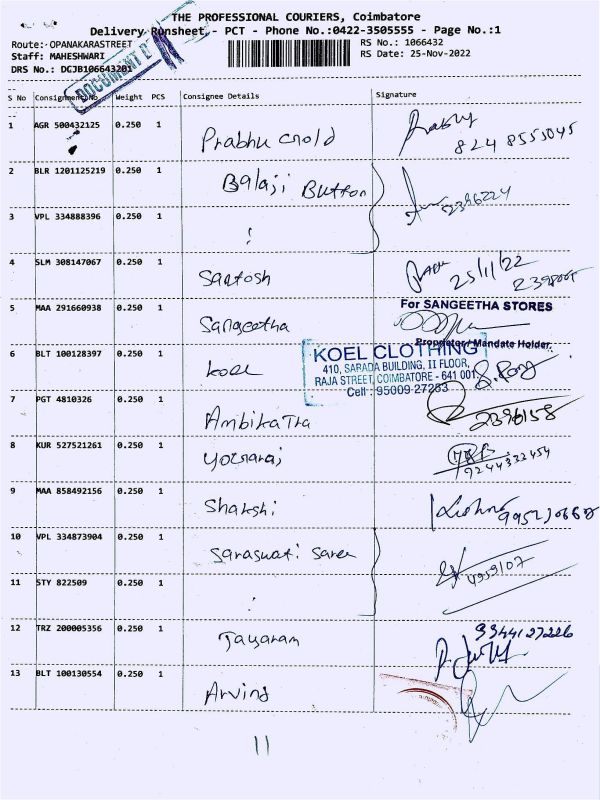 THE PROFESSIONAL COURIERS, Coimbatore
Delivery Runsheet - PCT - Phone No.:0422-3505555 - Page No.:1
Route: OPANAKARASTREET RS No.: 1066432
Staff: MAHESHWARI RS Date: 25-Nov-2022
DRS No.: DCJB106643201
DOCUMENT
S No Consignment No. Weight PCS Consignee Details Signature
1 AGR 500432125 0.250 1 Prabhu Gold
8248553045
2 BLR 1201125219 0.250 1 Balaji Button 2396224
3 VPL 334888396 0.250 1
4 SLM 308147067 0.250 1 Santosh 25/11/22
5 MAA 291660938 0.250 1 Sangeetha For SANGEETHA STORES
Proprietor/Mandate Holder.
6 BLT 100128397 0.250 1 Koel KOEL CLOTHING
410, SARADA BUILDING, II FLOOR,
RAJA STREET, COIMBATORE - 641 001.
Cell : 95009 27283
7 PGT 4810326 0.250 1 Ambikatha 2396158
8 KUR 527521261 0.250 1 Youraraj 9244332454
9 MAA 858492156 0.250 1 Shakshi
10 VPL 334873904 0.250 1 Saraswati Saree 4959107
11 STY 822509 0.250 1
12 TRZ 200005356 0.250 1 Jayaram 9344127226
13 BLT 100130554 0.250 1 Arvind
11